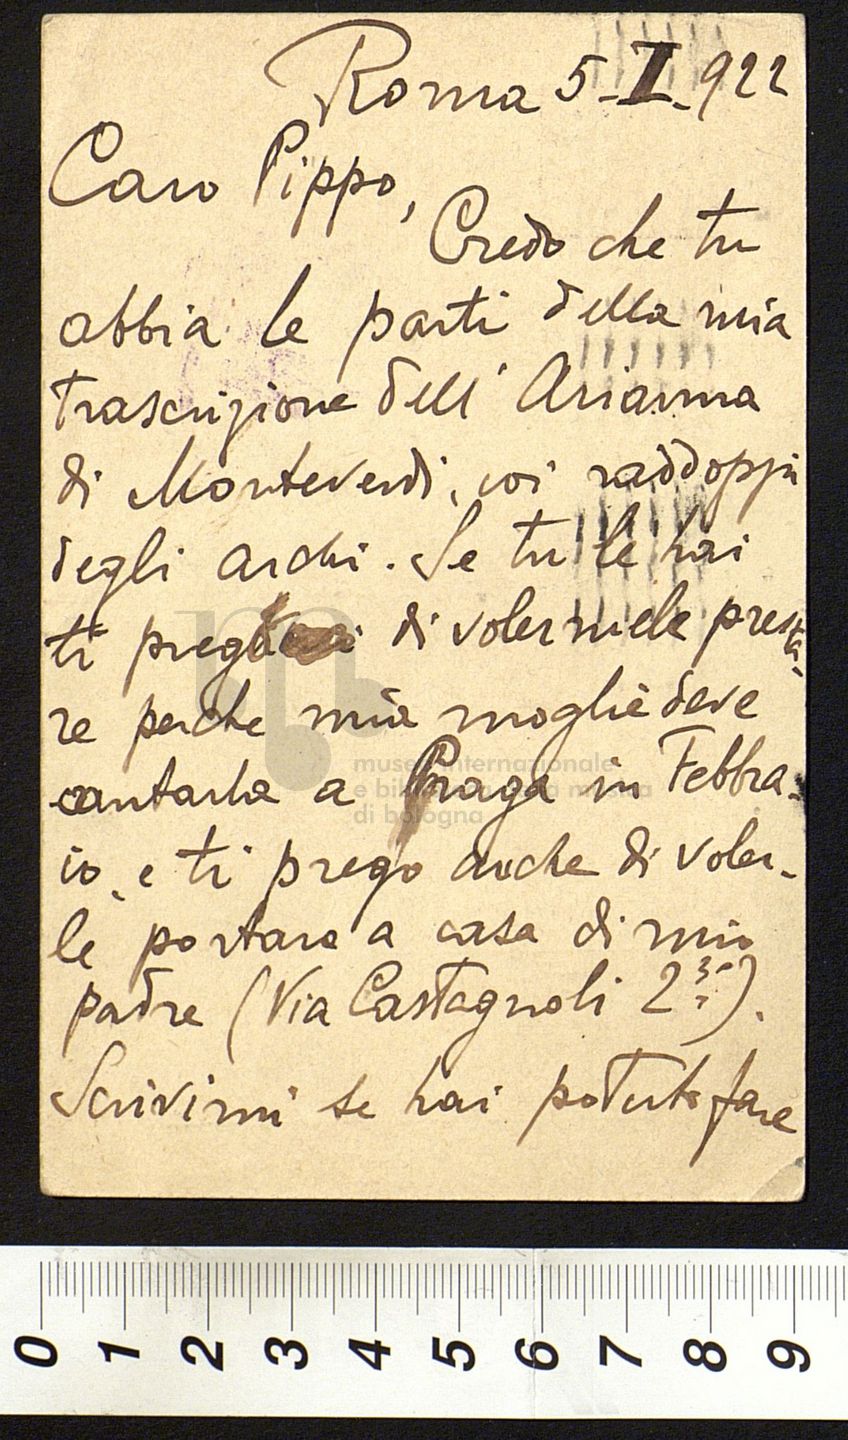 Roma 5-I-922
Caro Pippo,
Credo che tu
abbia le parti della mia
trascrizione dell'Arianna
di Monteverdi, coi raddoppi
degli archi. Se tu le hai
ti prego di volermele presta-
re perche mia moglie deve
cantarla a Praga in Febbra-
io, e ti prego anche di voler-
le portare a casa di mio
padre (Via Castagnoli 2).
Scrivimi se hai potuto fare
museo internazionale
e biblioteca della musica
di bologna
0 1 2 3 4 5 6 7 8 9